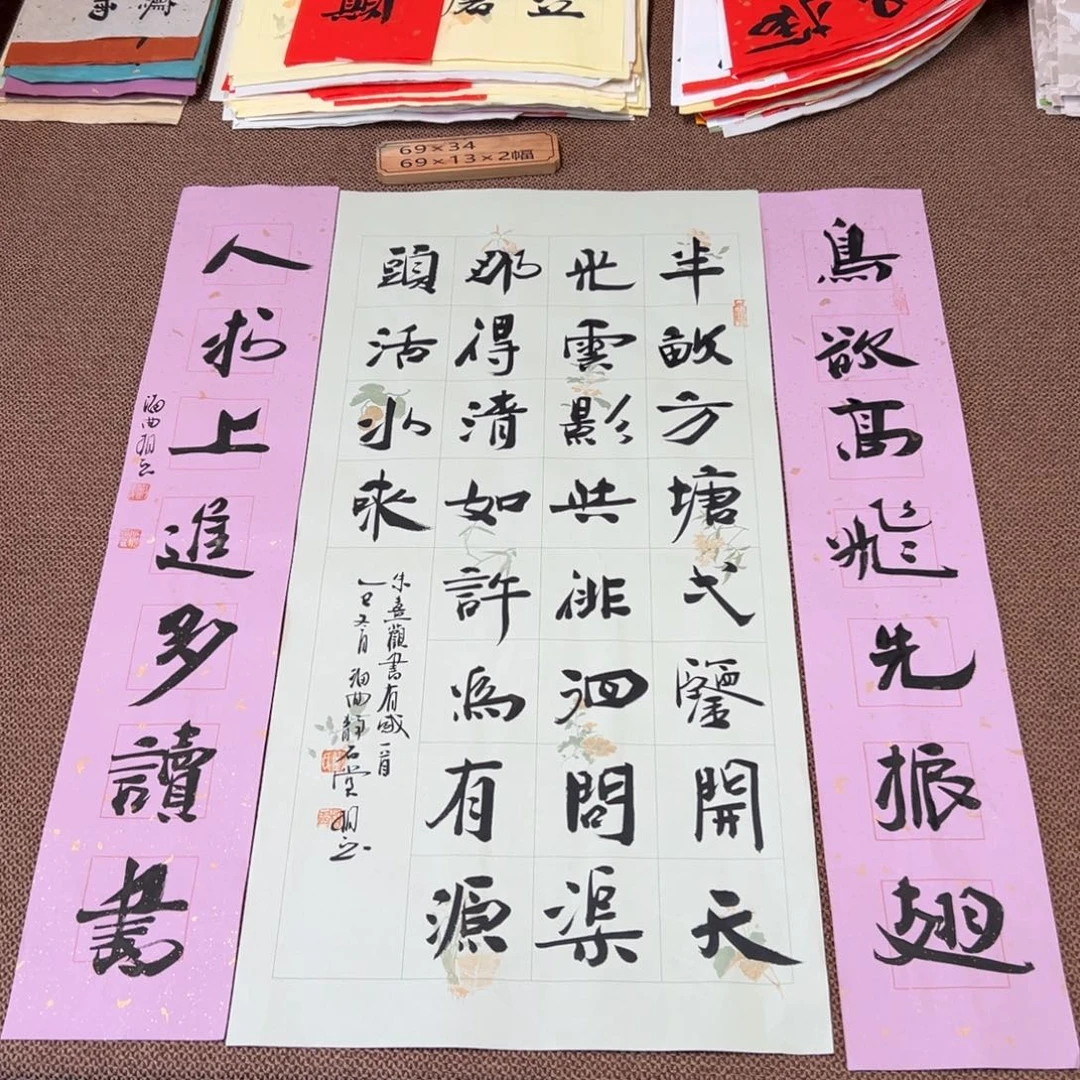 69×34
69×13×2幅
鳥欲高飛先振翅
半畝方塘弌鑒開天
光雲影共徘徊問渠
那得清如許為有源
頭活水來
朱熹觀書有感一首
乙巳五月海曲靜石堂
人求上進多讀書
海曲